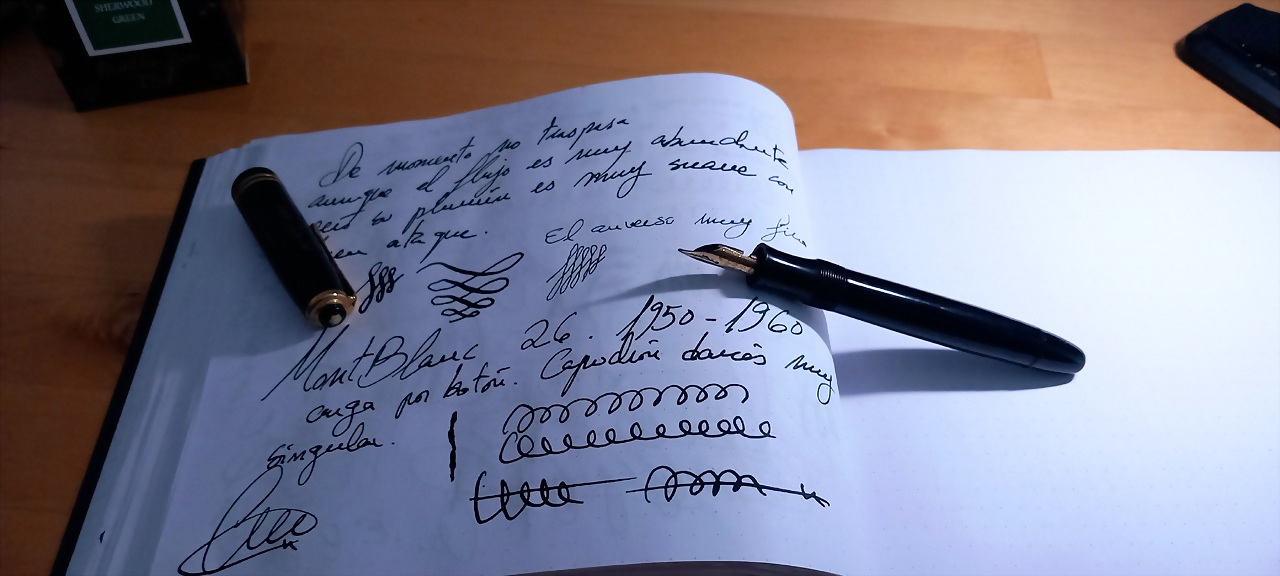 SHERWOOD
GREEN
De momento no traspasa
aunque el flujo es muy abundante
pero su plumín es muy suave con
buen ataque.
El anverso muy fino
MontBlanc 26. 1950-1960
carga por botón. Capuchón danés muy
singular.